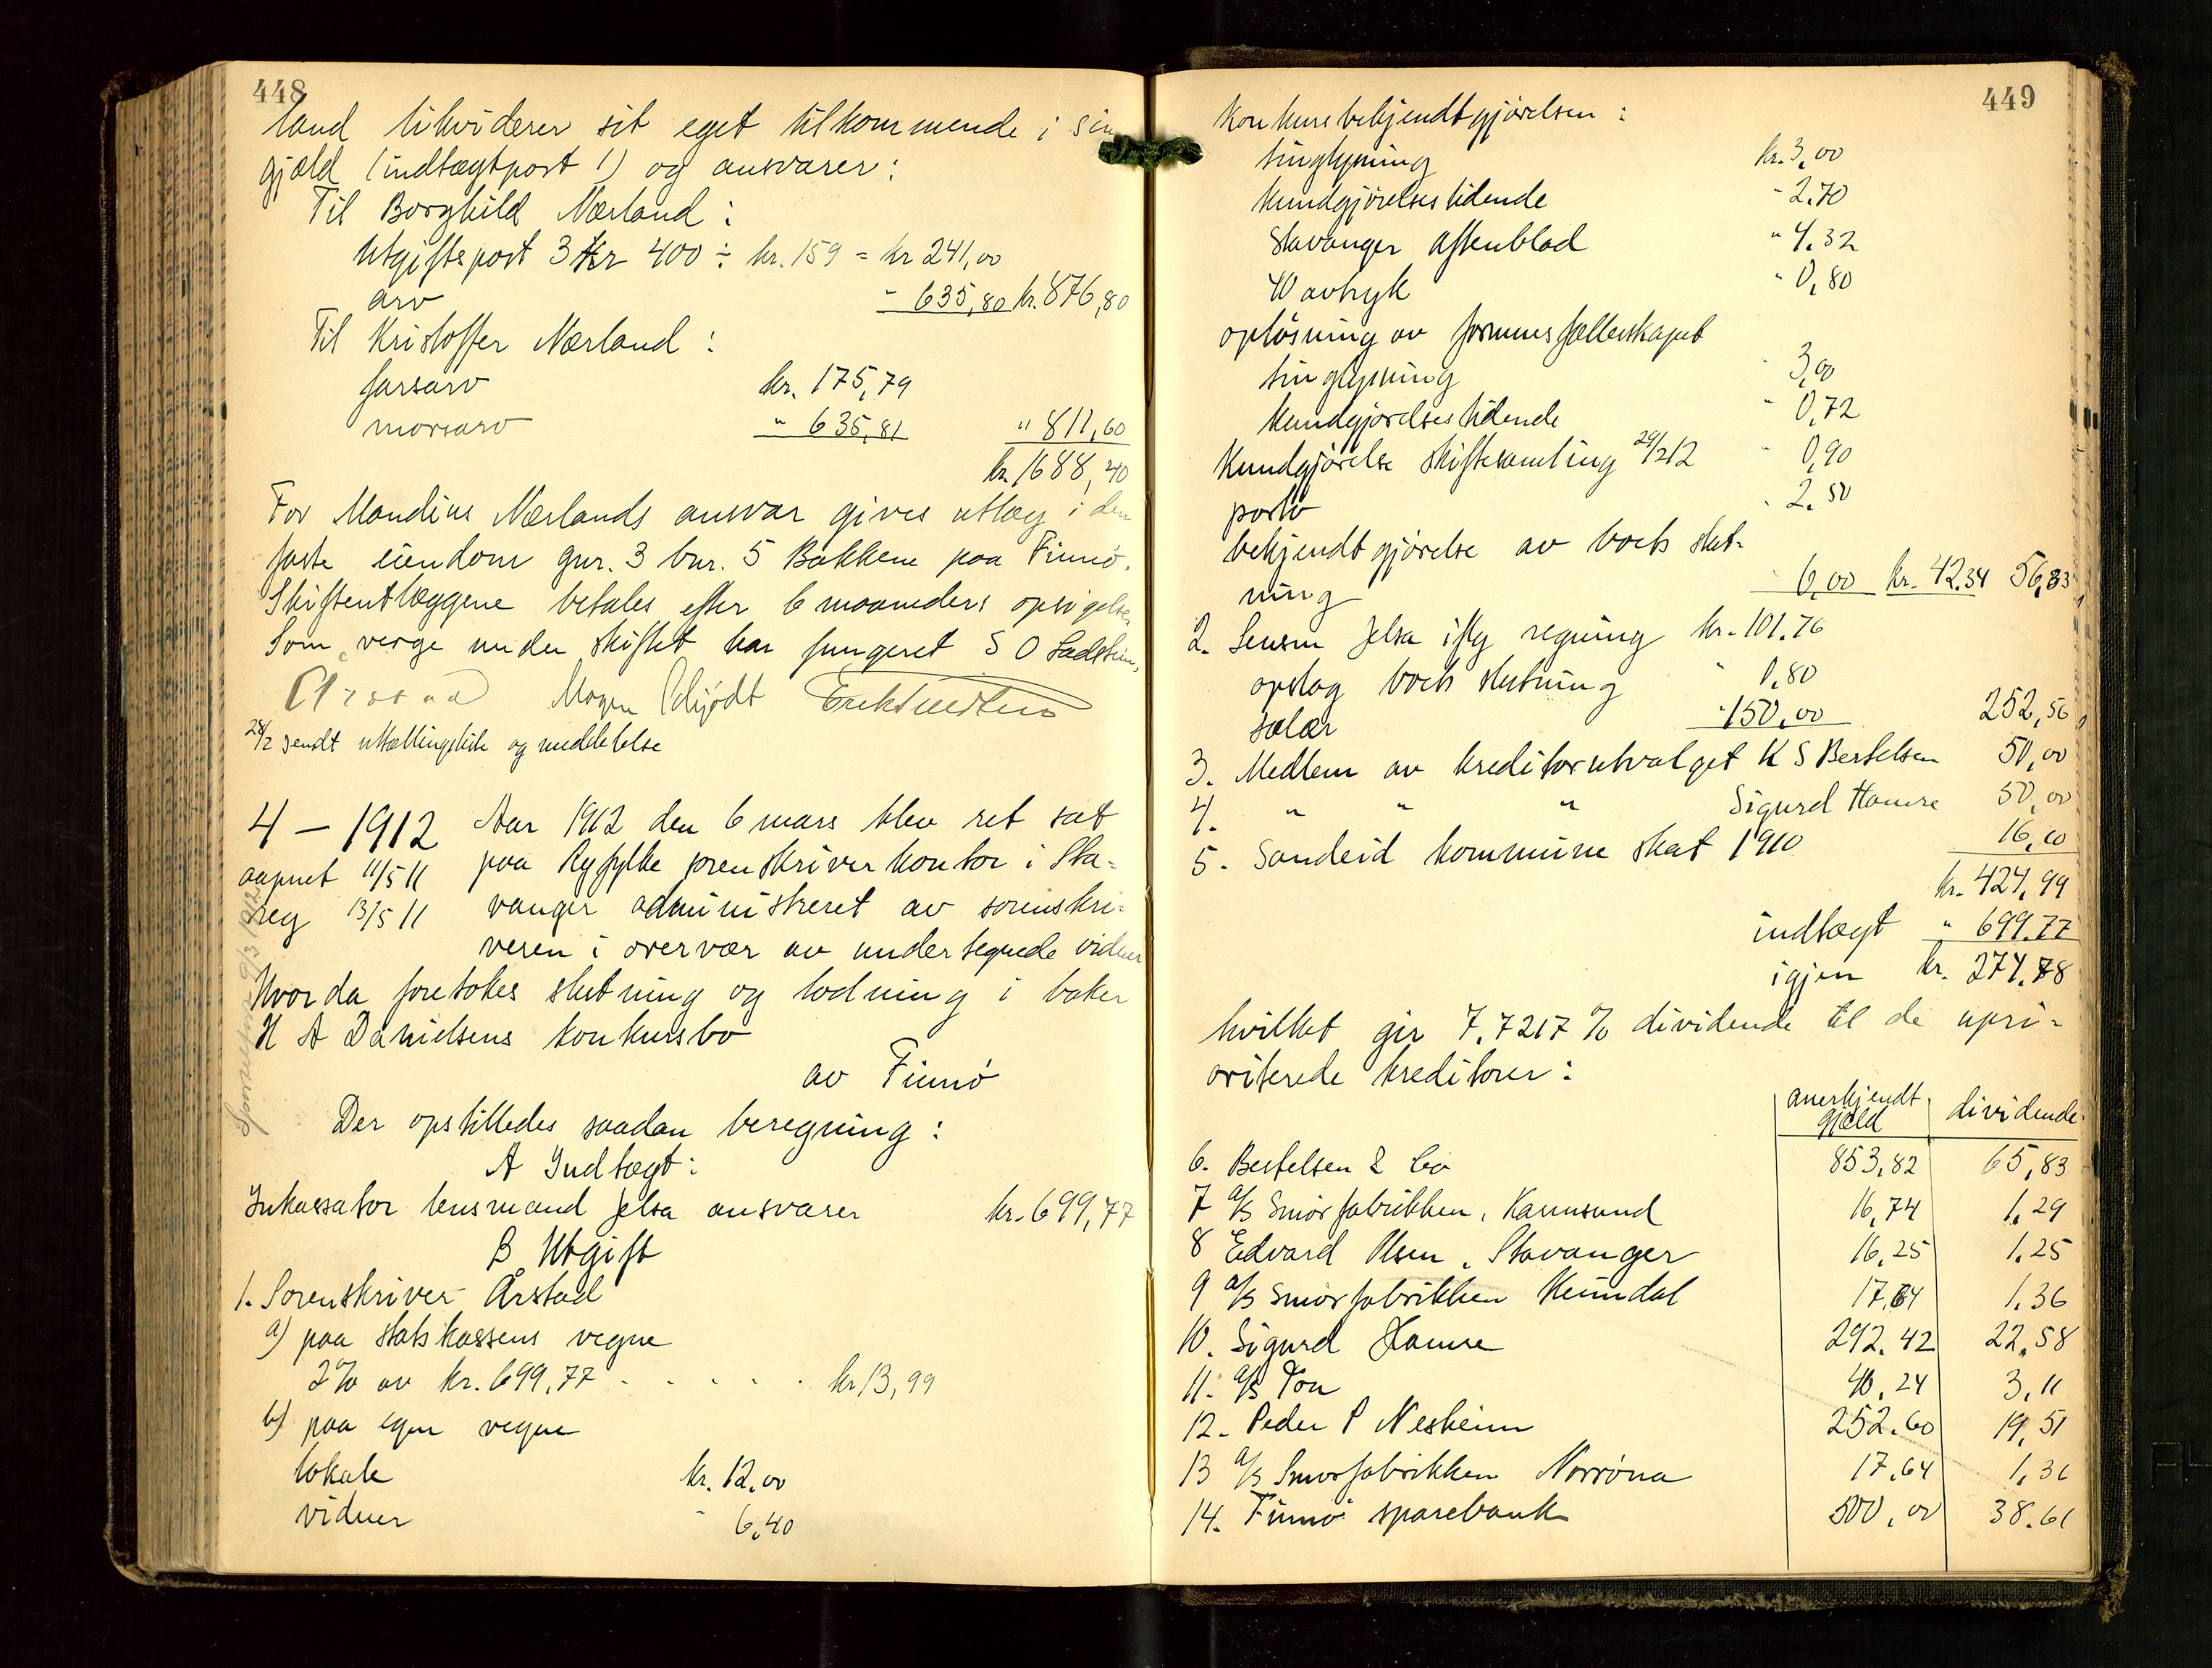 448
land likviderer sit eget tilkommende i sin
gjæld (indtægtpost 1) og ansvarer:
Til Borghild Nærland:
Utgiftspost 3 kr 400 ÷ kr. 159 = kr 241,00
arv " 635,80 kr. 876,80
Til Kristoffer Nærland:
farsarv kr. 175,79
morsarv " 635,81 " 811,60
kr. 1688,40
For Mandius Nærlands ansvar gives utlæg i den
faste eiendom gnr. 3 bnr. 5 Bakkene paa Finnö.
Skifteutlæggene betales efter 6 maaneders opsigelse
Som verge under skiftet har fungeret S O Ladstein,
Årstad Mogen Erik
28/2 sendt utlællingsliste og meddelelse
4 – 1912 Aar 1912 den 6 mars blev ret sat
aapnet 11/5 11 paa Ryfylke sorenskriverkontor i Sta-
reg 13/5 11 vanger administreret av sorenskri-
veren i overvær av undertegnede vidner
Hvorda foretokes slutning og lodning i baker
H A Danielsens konkursbo
av Finnö
Der opstilledes saadan beregning:
A Indtægt:
Inkassator lensmand Jelsa ansvarer kr. 699,77
B Utgift
1. Sorenskriver Årstad
a) paa statskassens vegne
2% av kr. 699,77 - - - - - kr 13,99
b) paa egne vegne
lokale kr. 12,00
vidner " 6,40
449
Konkursbekjendtgjörelsen:
tinglysning kr. 3,00
Kundgjörelsestidende " 2.70
Stavanger Aftenblad " 4.32
40 avtryk " 0,80
oplösning av formuesfællesskapet
tinglysning " 3,00
Kundgjörelsestidende " 0,72
Kundgjörelse skiftesamling 29/2 12 " 0,90
porto " 2.50
bekjendtgjörelse av boets slut-
ning " 6,00 kr. 42.34 56,33
2. Lensm Jelsa iflg regning kr. 101.76
opslag boets slutning " 0,80
salær " 150,00 252,56
3. Medlem av kreditorutvalget K S Bertelsen 50,00
4. " " " Sigurd Hamre 50,00
5. Sandeid kommune skat 1910 16,10
kr. 424,99
indtægt " 699.77
igjen kr. 274.78
hvilket gir 7.7217 % dividende til de upri-
oriterede kreditorer:
anerkjendt gjæld dividende
6. Bertelsen & Co 853,82 65,83
7 A/S Smörfabrikken, Karmsund 16,74 1,29
8 Edvard Olsen, Stavanger 16,25 1.25
9 A/S Smörfabrikken Heimdal 17,64 1.36
10. Sigurd Hamre 292.42 22.58
11. A/S Ton 40,24 3,11
12. Peder P Nesheim 252.60 19,51
13 A/S Smörfabrikken Norröna 17.64 1,36
14. Finnö sparebank 500,00 38.61